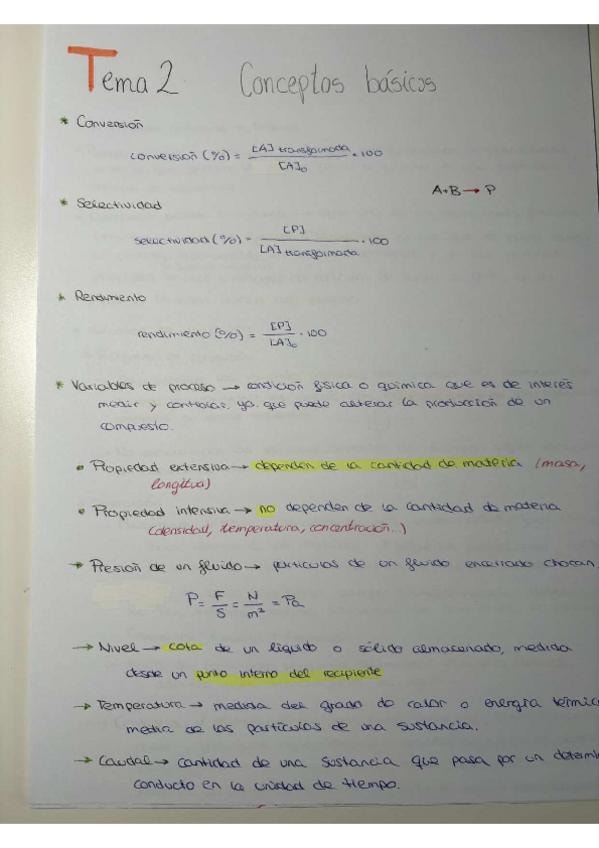 Tema 2 Conceptos básicos
* Conversión
conversión (%) = [A] transformada / [A]₀ · 100
A+B → P
* Selectividad
selectividad (%) = [P] / [A] transformada · 100
* Rendimiento
rendimiento (%) = [P] / [A]₀ · 100
* Variables de proceso → condición física o química que es de interés
medir y controlar, ya que puede alterar la producción de un
compuesto.
• Propiedad extensiva → dependen de la cantidad de materia (masa,
longitud)
• Propiedad intensiva → no dependen de la cantidad de materia
(densidad, temperatura, concentración...)
→ Presión de un fluido → partículas de un fluido encerrado chocan
P = F / S = N / m² = Pa
→ Nivel → cota de un líquido o sólido almacenado, medida
desde un punto interno del recipiente
→ Temperatura → medida del grado de calor o energía térmic
media de las partículas de una sustancia.
→ Caudal → cantidad de una sustancia que pasa por un determi
conducto en la unidad de tiempo.